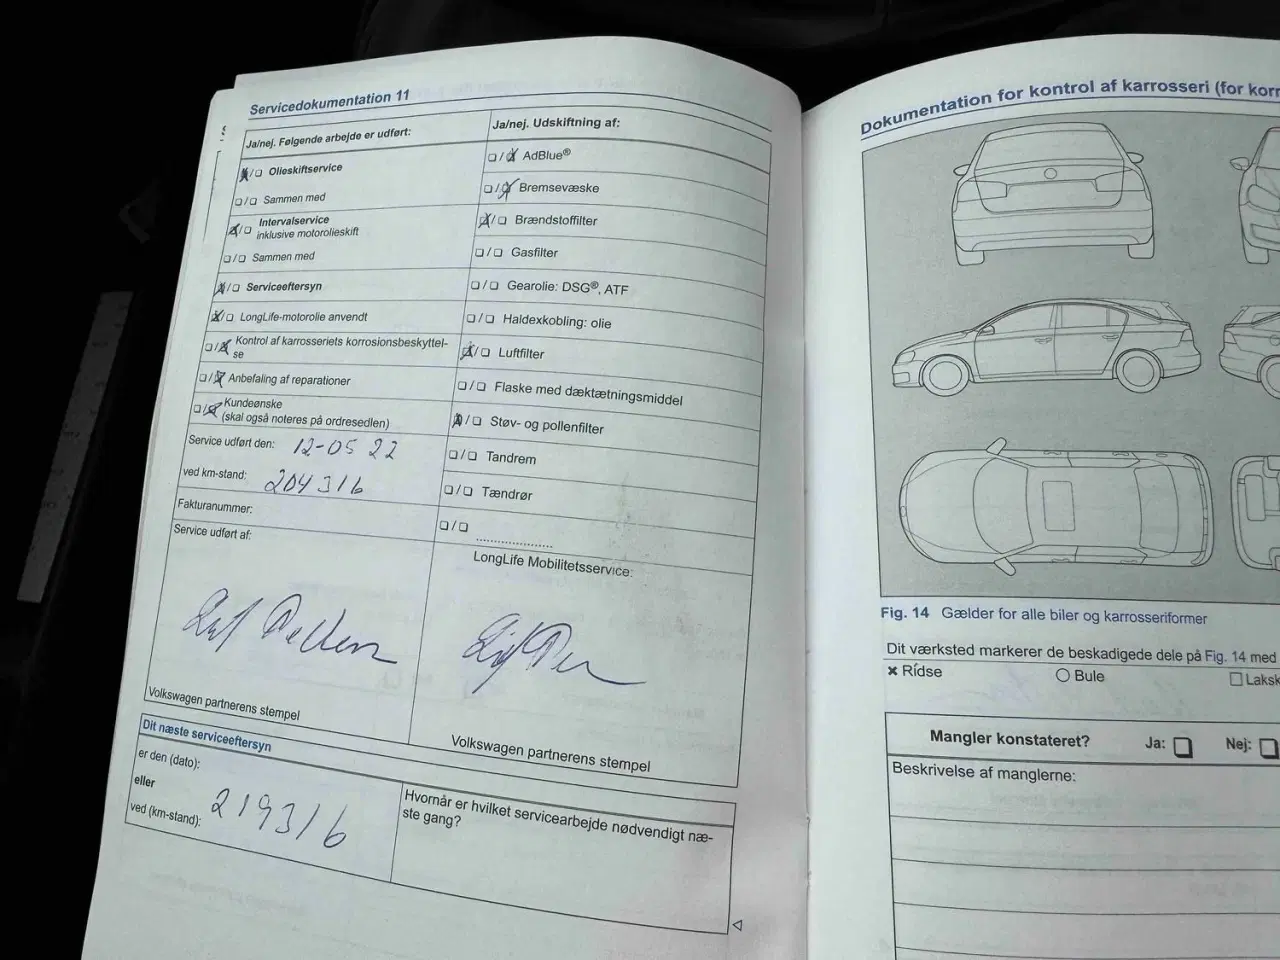 Servicedokumentation 11
Ja/nej. Følgende arbejde er udført:
☒/☐ Olieskiftservice
☐/☐ Sammen med
☒/☐ Intervalservice
inklusive motorolieskift
☐/☐ Sammen med
☒/☐ Serviceeftersyn
☒/☐ LongLife-motorolie anvendt
☐/☒ Kontrol af karrosseriets korrosionsbeskyttel-
se
☐/☒ Anbefaling af reparationer
☐/☒ Kundeønske
(skal også noteres på ordresedlen)
Service udført den: 12-05 22
ved km-stand: 204316
Fakturanummer:
Service udført af:
Volkswagen partnerens stempel
Ja/nej. Udskiftning af:
☐/☒ AdBlue®
☐/☒ Bremsevæske
☒/☐ Brændstoffilter
☐/☐ Gasfilter
☐/☐ Gearolie: DSG®, ATF
☐/☐ Haldexkobling: olie
☒/☐ Luftfilter
☐/☐ Flaske med dæktætningsmiddel
☒/☐ Støv- og pollenfilter
☐/☐ Tandrem
☐/☐ Tændrør
☐/☐ ....................
LongLife Mobilitetsservice:
Volkswagen partnerens stempel
Dit næste serviceeftersyn
er den (dato):
eller
ved (km-stand): 219316
Hvornår er hvilket servicearbejde nødvendigt næ-
ste gang?
Dokumentation for kontrol af karrosseri (for korr
Fig. 14 Gælder for alle biler og karrosseriformer
Dit værksted markerer de beskadigede dele på Fig. 14 med
× Ridse ○ Bule ☐ Laksk
Mangler konstateret? Ja: ☐ Nej: ☐
Beskrivelse af manglerne: